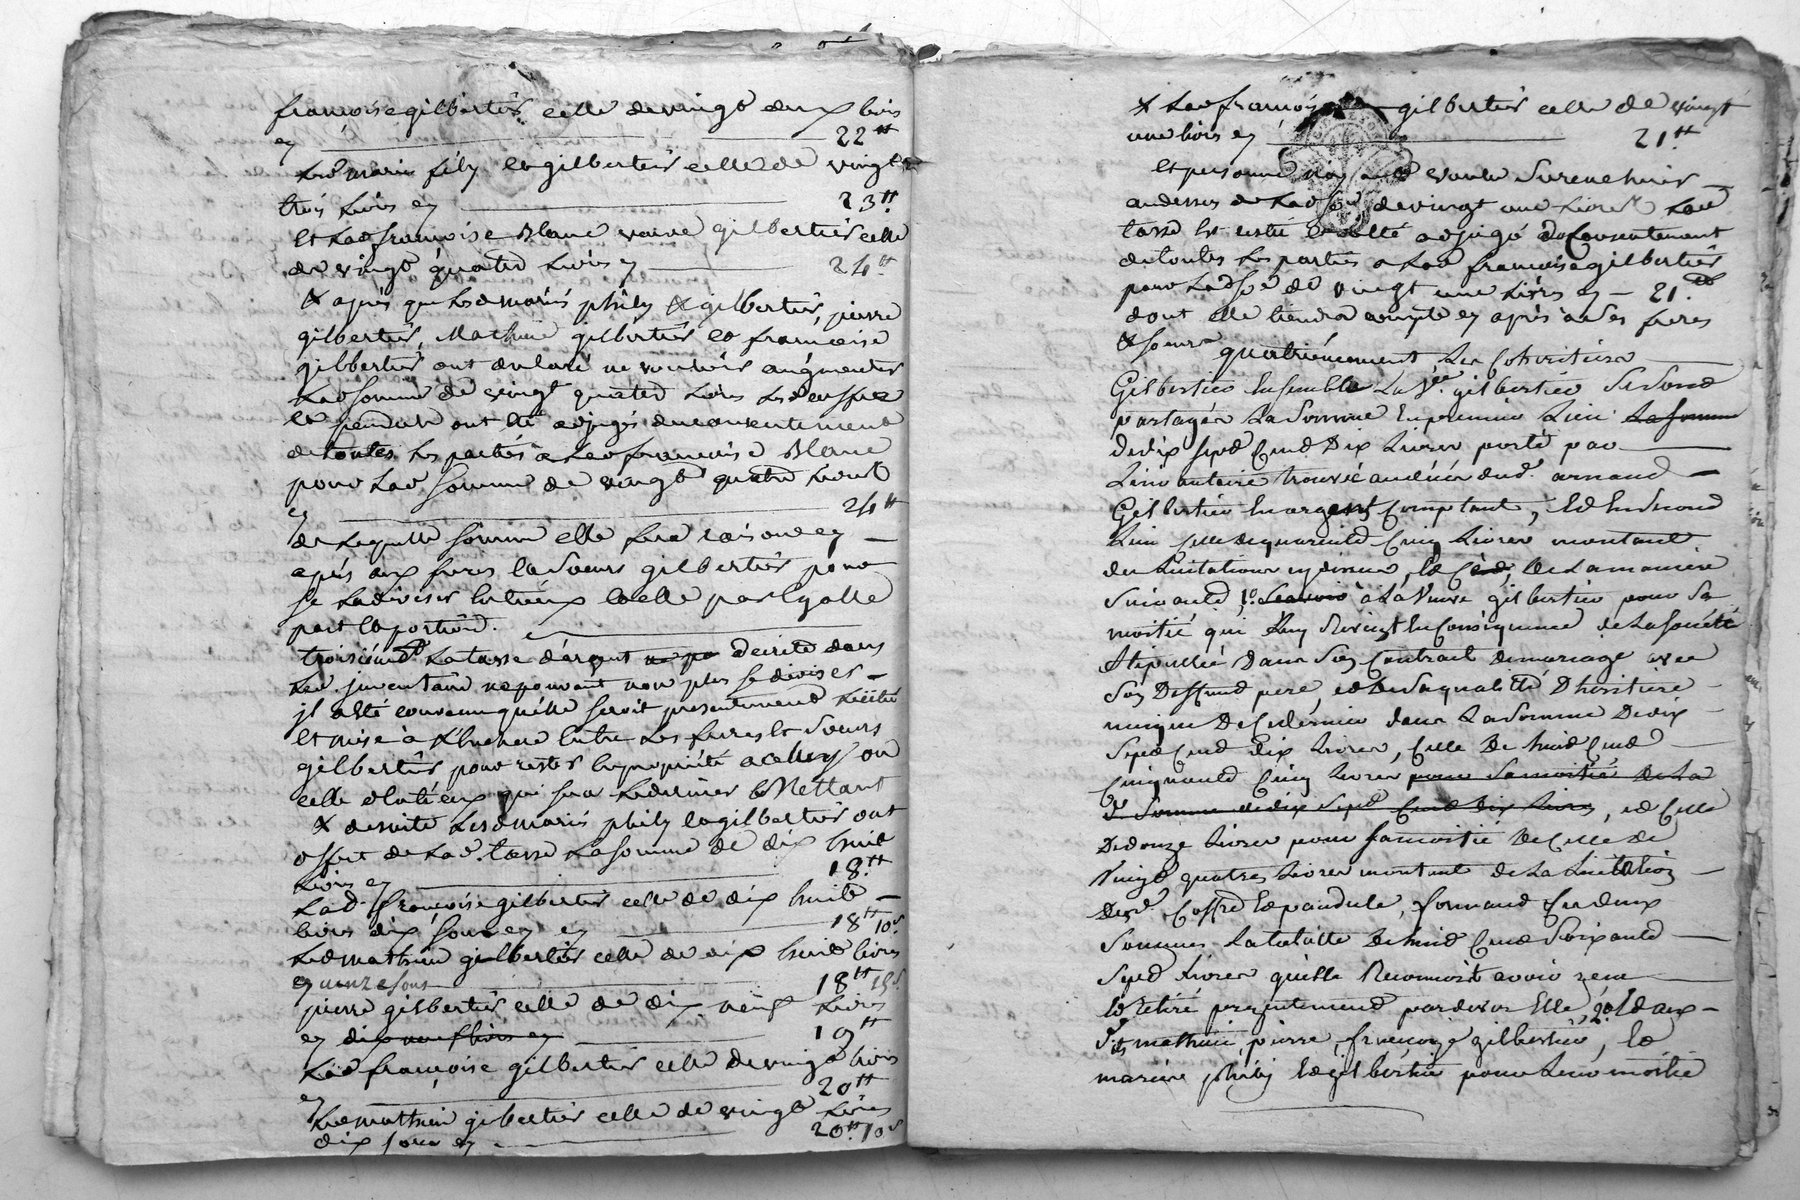 françoise gilbertier celle de vingt deux livres
cy 22tt
Led marin fily et gilbertier celle de vingt
trois livres cy 23tt
Et Lad françoise Blanc veuve gilbertier celle
de vingt quatre livres cy 24tt
& après que Lesd mariés phily & gilbertier, pierre
gilbertier, Mathieu gilbertier et françoise
gilbertier ont declaré ne vouloir augmenter
Lad somme de vingt quatre livres Lesd coffre
et pendule ont été adjugés du consentement
de toutes les parties à Lad françoise Blanc
pour Lad somme de vingt quatre livres
cy 24tt
de Laquelle somme elle fera raison cy
après aux freres et soeurs gilbertier pour
se La diviser entr'eux et elle par egalle
part et portion.
troisiément La tasse d'argent decrite dans
Led inventaire ne pouvant non plus se diviser
il a été convenu qu'elle seroit presentement licitée
et mise à l'enchere entre Les freres et soeurs
gilbertier, pour rester en proprieté a celluy ou
celle d'entr'eux qui sera Le dernier Mettant
& de suite Lesd mariés phily et gilbertier ont
offert de Lad. tasse La somme de dix huit
livres cy 18tt
Lad. françoise gilbertier celle de dix huit
livres dix sous cy 18tt 10s
Led mathieu gilbertier celle de dix huit livres
quinze sous 18tt 15s
pierre gilbertier celle de dix neuf livres
cy dix neuf livres cy 19tt
Lad françoise gilbertier celle de vingt livres
cy 20tt
Led mathieu gilbertier celle de vingt livres
dix sous cy 20tt 10s
& Lad françoise gilbertier celle de vingt
une livres cy 21tt
et personne n'ayant voulu surencherir
au dessus de Lad somme de vingt une livres Lad
tasse est restée et a été adjugé du Consentement
de toutes Les parties a Lad françoise gilbertier
pour Lad somme de vingt une livres cy 21tt
dont elle tiendra compte cy après à ses freres
& soeurs
quatriémement Les Cohéritiers
Gilbertier Ensemble La Ve gilbertier se sont
partagés La Somme En premier Lieu La somme
de dix sept Cent Dix Livres porté par
L'inventaire trouvée au décès dud. arnaud
Gilbertier En argent Comptant, Et En second
Lieu celle de quarante Cinq Livres montant
des Licitations cy dessus, et de La maniere
Suivante, 1°. à La Veuve gilbertier pour sa
moitié qui Luy Revient En Conséquence de La société
Stipullée Dans son Contrait de mariage avec
son Deffunt pere, et En sa qualitté D'héritiere
unique De Ce dernier dans La Somme De dix
Sept Cent dix Livres, Celle De huit Cent
Cinquante Cinq Livres pour sa moitié De La
d. Somme de dix sept Cent Dix Livres, et Celle
De douze Livres pour sa moitié De Celle de
Vingt quatres Livres montant de La Licitation
Desd. Coffre Et pandule, formant Ces deux
Sommes La totalitte De huit Cent Soixante
Sept Livres qu'elle Reconnoit avoir reçu
Et Retiré presentement pardevers Elle, 2° Et aux
dts mathieu, pierre, françoize gilbertier, et
mariés phily Et gilbertier pour Leur moitié